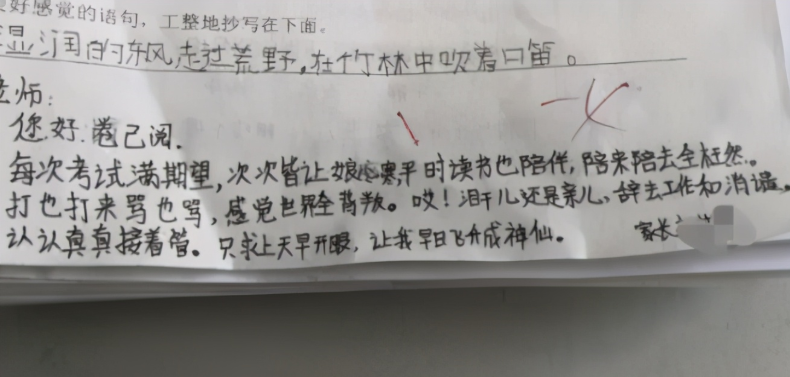 好感觉的语句，工整地抄写在下面。
显润的东风走过荒野，在竹林中吹着口笛。
老师：
您好：卷已阅.
每次考试满期望，次次皆让娘心寒，平时读书也陪伴，陪来陪去全枉然。
打也打来骂也骂，感觉世界全背叛。哎！泪干儿还是亲儿、辞去工作和消遣。
认认真真接着管。只求上天早开眼，让我早日飞升成神仙。
家长